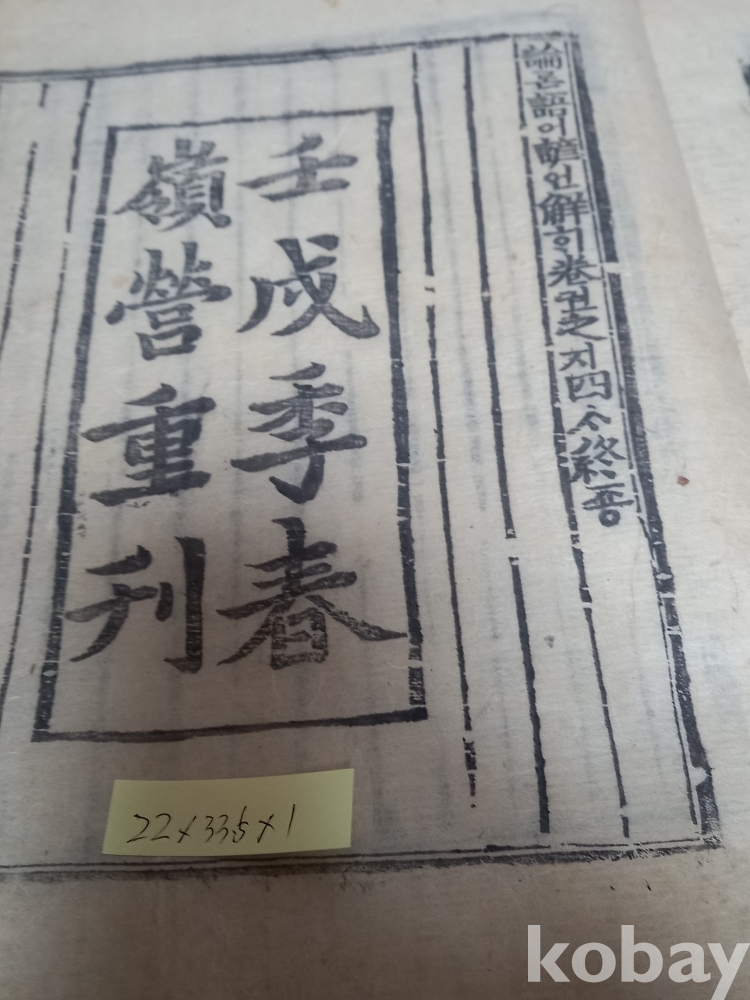 論론語어諺언解히卷권之지四ᄉ終죵
壬戌季春
嶺營重刊
22×33.5×1
kobay